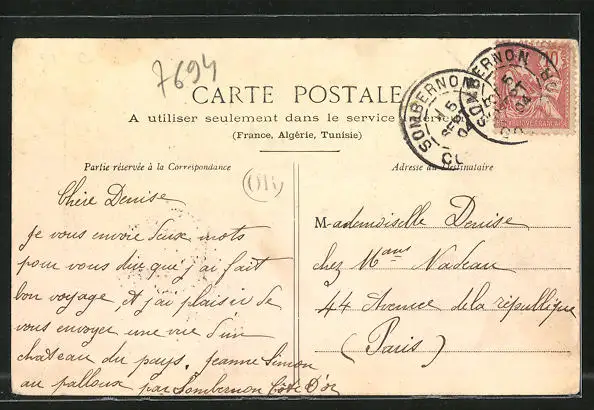 7694
CARTE POSTALE
A utiliser seulement dans le service intérieur
(France, Algérie, Tunisie)
SOMBERNON
SOMBERNON
10
Partie réservée à la Correspondance
Adresse du Destinataire
Chère Denise
Je vous envoie deux mots
pour vous dire que j'ai fait
bon voyage, et j'ai plaisir de
vous envoyer une vue d'un
chateau du pays. Jeanne Simon
au palloux par Sombernon Côte D'or
Mademoiselle Denise
chez Mans Nadeau
44 Avenue de la république
(Paris)